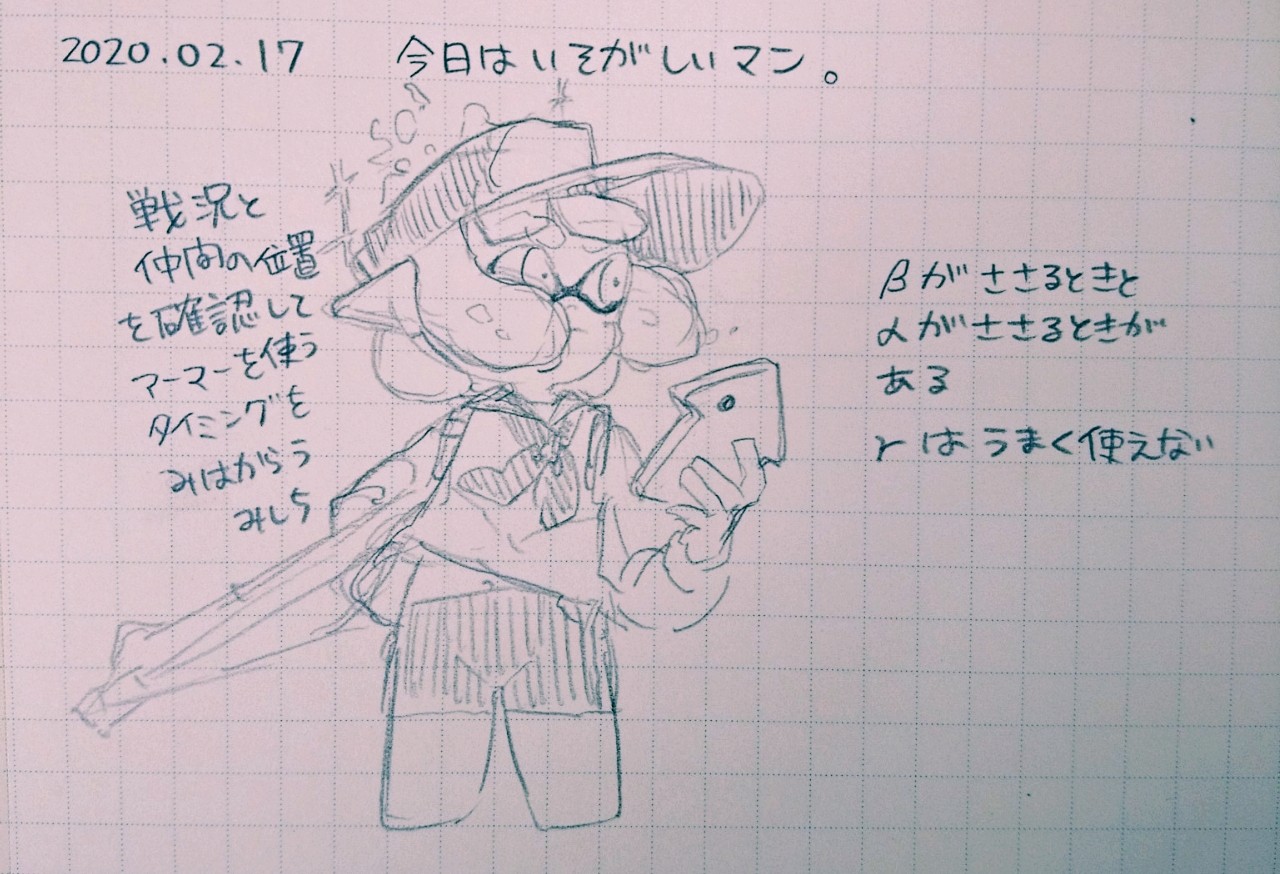 2020.02.17 今日はいそがしいマン。
戦況と
仲間の位置
を確認して
アーマーを使う
タイミングを
みはからう
みしち
βがささるときと
αがささるときが
ある
γはうまく使えない